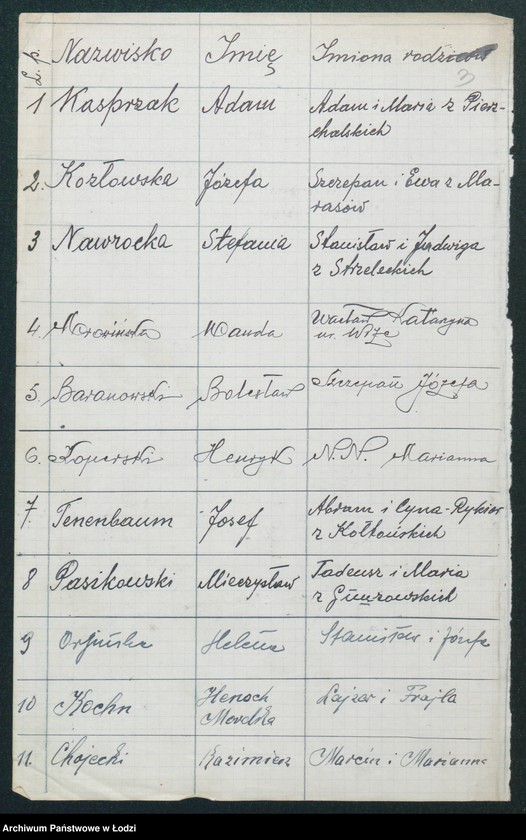 L. p. Nazwisko Imię Imiona rodziców
3
1 Kasprzak Adam Adam i Maria z Pierz-
chalskich
2. Kozłowska Józefa Szczepan i Ewa z Ma-
rasów
3 Nawrocka Stefania Stanisław i Jadwiga
z Strzeleckich
4. Wanda Wacław Katarzyna
ur.
5. Baranowski Bolesław Szczepan Józefa
6. Koperski Henryk N.N. Marianna
7. Tenenbaum Josef Abram i Cyna-
z Kołtońskich
8 Pasikowski Mieczysław Tadeusz i Maria
z
9 Helena Stanisław i Józefa
10 Kochn Henoch Lajzer i Frajla
Mordka
11. Chojecki Kazimierz Marcin i Marianna
Archiwum Państwowe w Łodzi